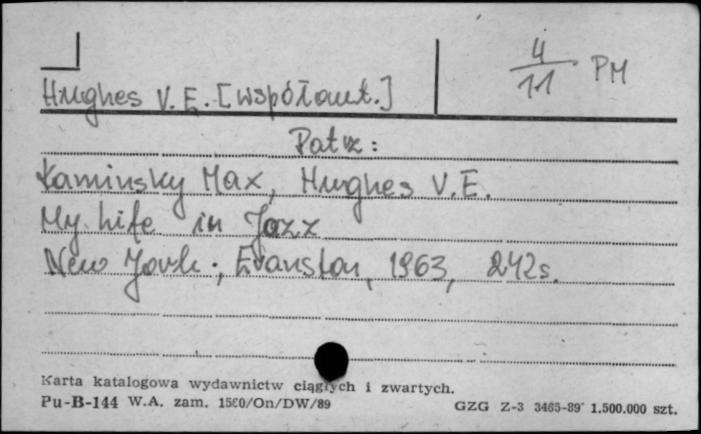 Hughes V.E. [współaut.]
4/11 PM
Patrz:
Kaminsky Max, Hughes V.E.
My life in Jazz
New York; Evanston, 1963, 242s.
Karta katalogowa wydawnictw ciągłych i zwartych.
Pu-B-144 W.A. zam. 1560/On/DW/89
GZG Z-3 3465-89 1.500.000 szt.